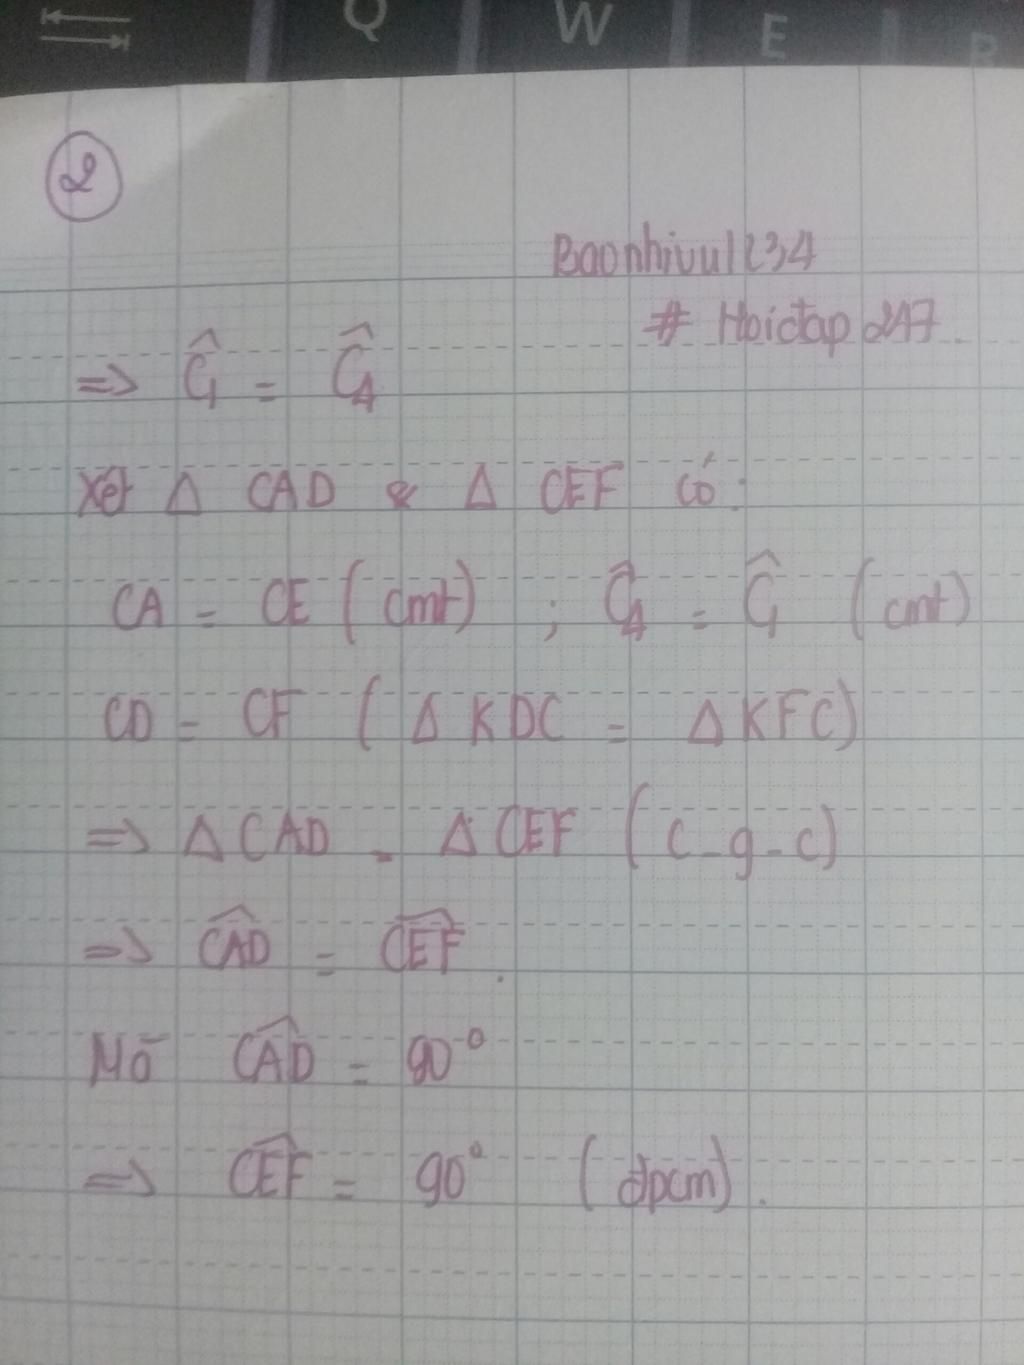 Q W E R
2
Baonhivu1234
# Hoidap247.
=> Ĉ₁ = Ĉ₄
Xét Δ CAD & Δ CEF có:
CA = CE (cmt) ; Ĉ₄ = Ĉ₁ (cmt)
CD = CF (Δ KDC = Δ KFC)
=> Δ CAD = Δ CEF (c-g-c)
=> \widehat{CAD} = \widehat{CEF}.
Mà \widehat{CAD} = 90°
=> \widehat{CEF} = 90° (đpcm).